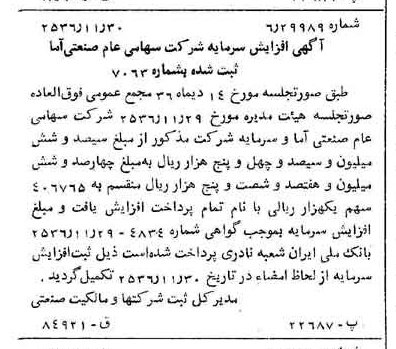 شماره ۶/۲۹۹۸۹ ۲۵۳۶/۱۱/۳۰
آگهی افزایش سرمایه شرکت سهامی عام صنعتی آما
ثبت شده بشماره ۷۰۶۳
طبق صورتجلسه مورخ ۱۴ دیماه ۳۶ مجمع عمومی فوق‌العاده
صورتجلسه هیئت مدیره مورخ ۲۵۳۶/۱۱/۲۹ شرکت سهامی
عام صنعتی آما و سرمایه شرکت مذکور از مبلغ سیصد و شش
میلیون و سیصد و چهل و پنج هزار ریال به‌مبلغ چهارصد و شش
میلیون و هفتصد و شصت و پنج هزار ریال منقسم به ۴۰۶۷۶۵
سهم یکهزار ریالی با نام تمام پرداخت افزایش یافت و مبلغ
افزایش سرمایه بموجب گواهی شماره ۴۸۳۴ - ۲۵۳۶/۱۱/۲۹
بانک ملی ایران شعبه نادری پرداخت شده‌است ذیل ثبت‌افزایش
سرمایه از لحاظ امضاء در تاریخ ۲۵۳۶/۱۱/۳۰ تکمیل‌گردید.
مدیرکل ثبت شرکتها و مالکیت صنعتی
پ - ۲۲۶۸۷ ق - ۸۴۹۲۱